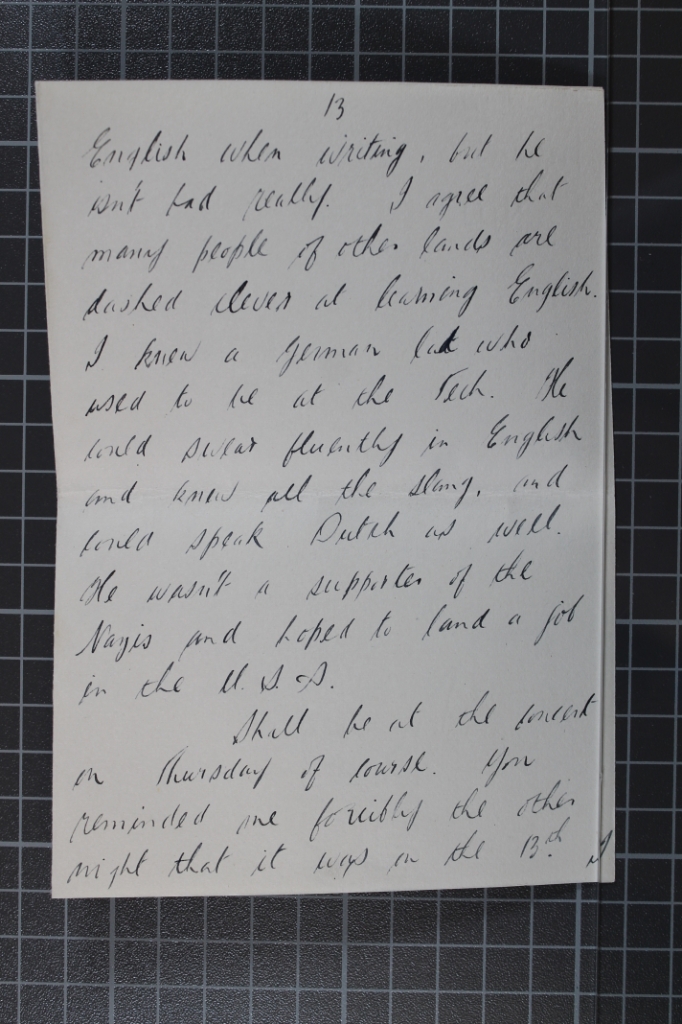 13
English when writing, but he
isn't bad really. I agree that
many people of other lands are
dashed clever at learning English.
I knew a German lad who
used to be at the Tech. He
could swear fluently in English
and knew all the slang, and
could speak Dutch as well.
He wasn't a supporter of the
Nazis and hoped to land a job
in the U.S.A.
Shall be at the concert
on Thursday of course. You
reminded me forcibly the other
night that it was on the 13th. I